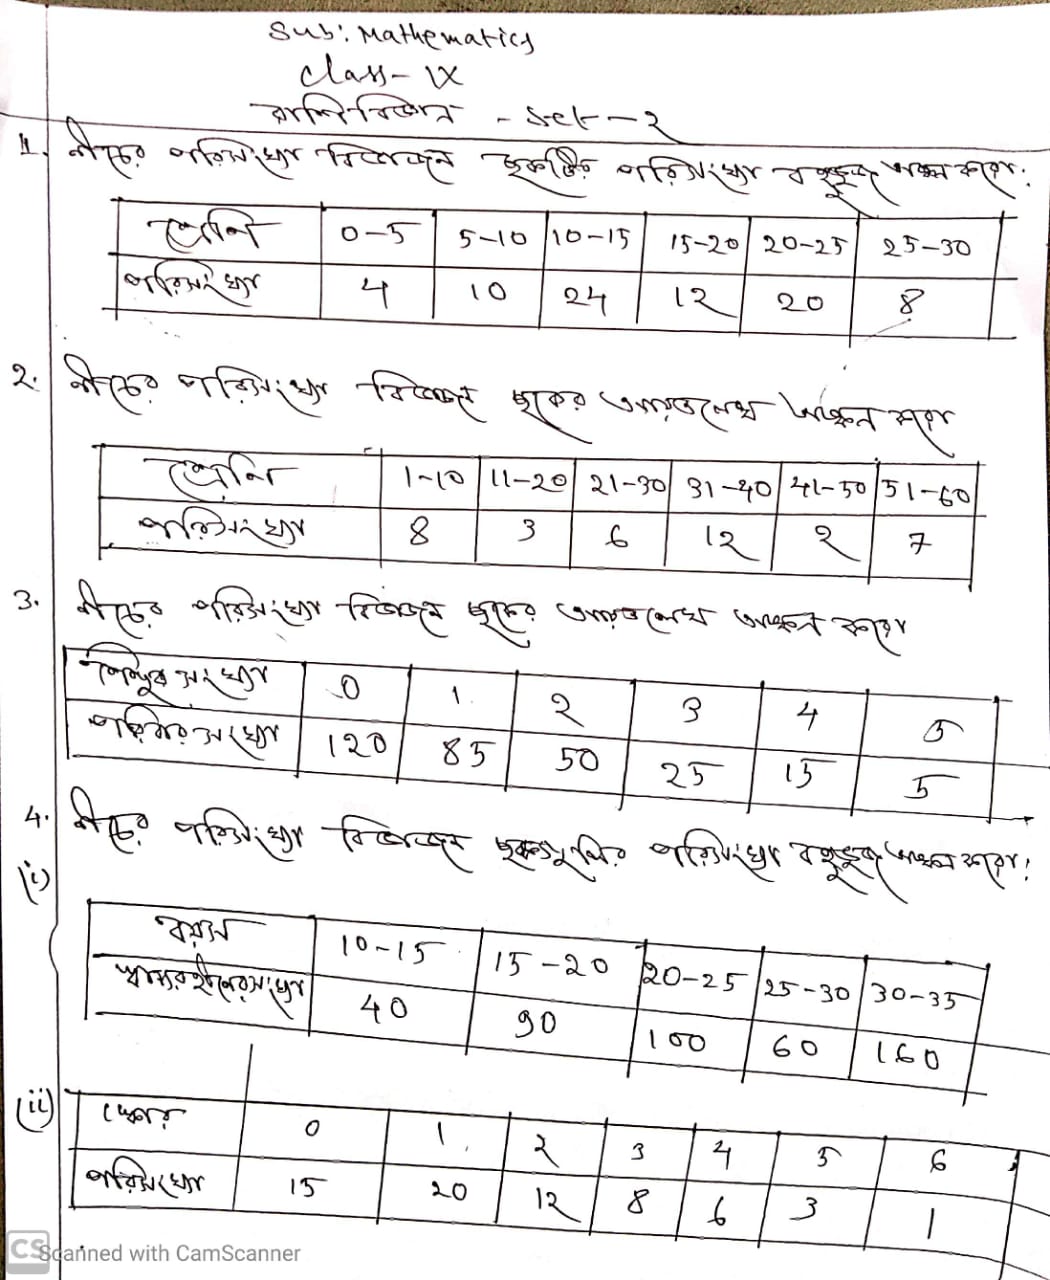 Sub: Mathematics
Class - IX
রাশিবিজ্ঞান - Set - 2
1. নীচের পরিসংখ্যা বিভাজন ছকটির পরিসংখ্যা বহুভুজ অঙ্কন করো:
শ্রেণি 0-5 5-10 10-15 15-20 20-25 25-30
পরিসংখ্যা 4 10 24 12 20 8
2. নীচের পরিসংখ্যা বিভাজন ছকের আয়তলেখ অঙ্কন করো
শ্রেণি 1-10 11-20 21-30 31-40 41-50 51-60
পরিসংখ্যা 8 3 6 12 2 7
3. নীচের পরিসংখ্যা বিভাজন ছকের আয়তলেখ অঙ্কন করো
শিশুর সংখ্যা 0 1 2 3 4 5
পরিবার সংখ্যা 120 85 50 25 15 5
4. নীচের পরিসংখ্যা বিভাজন ছকগুলির পরিসংখ্যা বহুভুজ অঙ্কন করো:
(i)
বয়স 10-15 15-20 20-25 25-30 30-35
40 90 100 60 160
(ii)
স্কোর 0 1 2 3 4 5 6
পরিসংখ্যা 15 20 12 8 6 3 1
CS Scanned with CamScanner